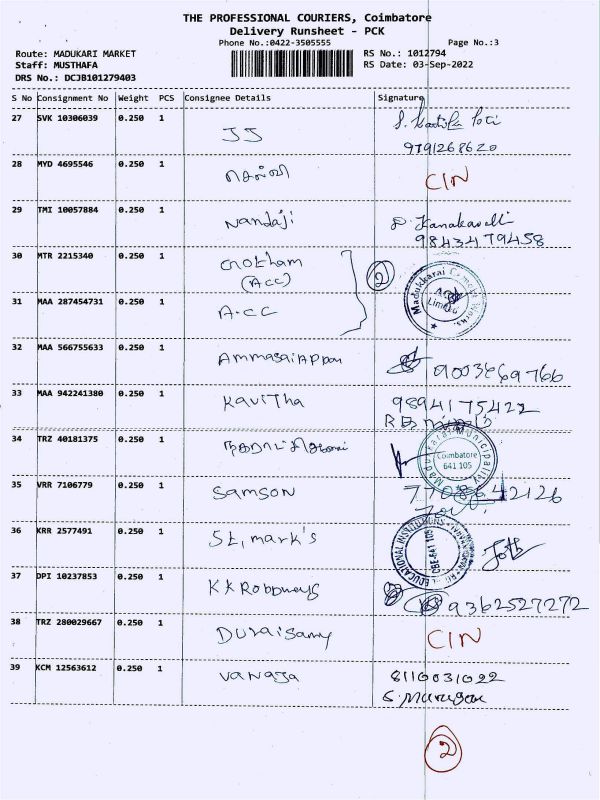 THE PROFESSIONAL COURIERS, Coimbatore
Delivery Runsheet - PCK
Phone No.:0422-3505555
Page No.:3
Route: MADUKARI MARKET
RS No.: 1012794
Staff: MUSTHAFA
RS Date: 03-Sep-2022
DRS No.: DCJB101279403
S No Consignment No Weight PCS Consignee Details Signature
27 SVK 10306039 0.250 1 JJ
9791268620
28 MYD 4695546 0.250 1 செல்வி CIN
29 TMI 10057884 0.250 1 Nandaji
9843479458
30 MTR 2215340 0.250 1
(Acc) 2
31 MAA 287454731 0.250 1 A.CC
Madukkarai Cement Works
ACC
Limited
32 MAA 566755633 0.250 1 Ammasaiappan 9003669766
33 MAA 942241380 0.250 1 Kavitha 9894175422
34 TRZ 40181375 0.250 1
Coimbatore
641 105
35 VRR 7106779 0.250 1 Samson 7708642126
36 KRR 2577491 0.250 1 St, mark's
EDUCATIONAL INSTITUTIONS
CBE-641 105
37 DPI 10237853 0.250 1 9362527272
38 TRZ 280029667 0.250 1 Duraisamy CIN
39 KCM 12563612 0.250 1 Vanaja 8110031022
S. Murugan
2